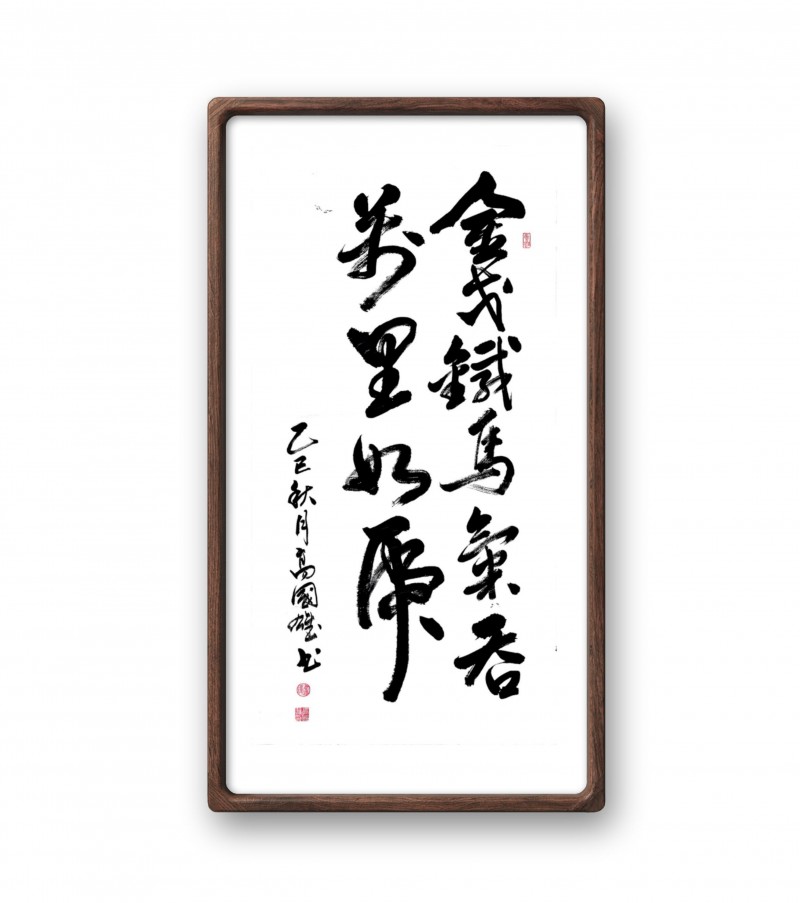 金戈鐵馬氣吞
萬里如虎
乙巳秋月高國雄书